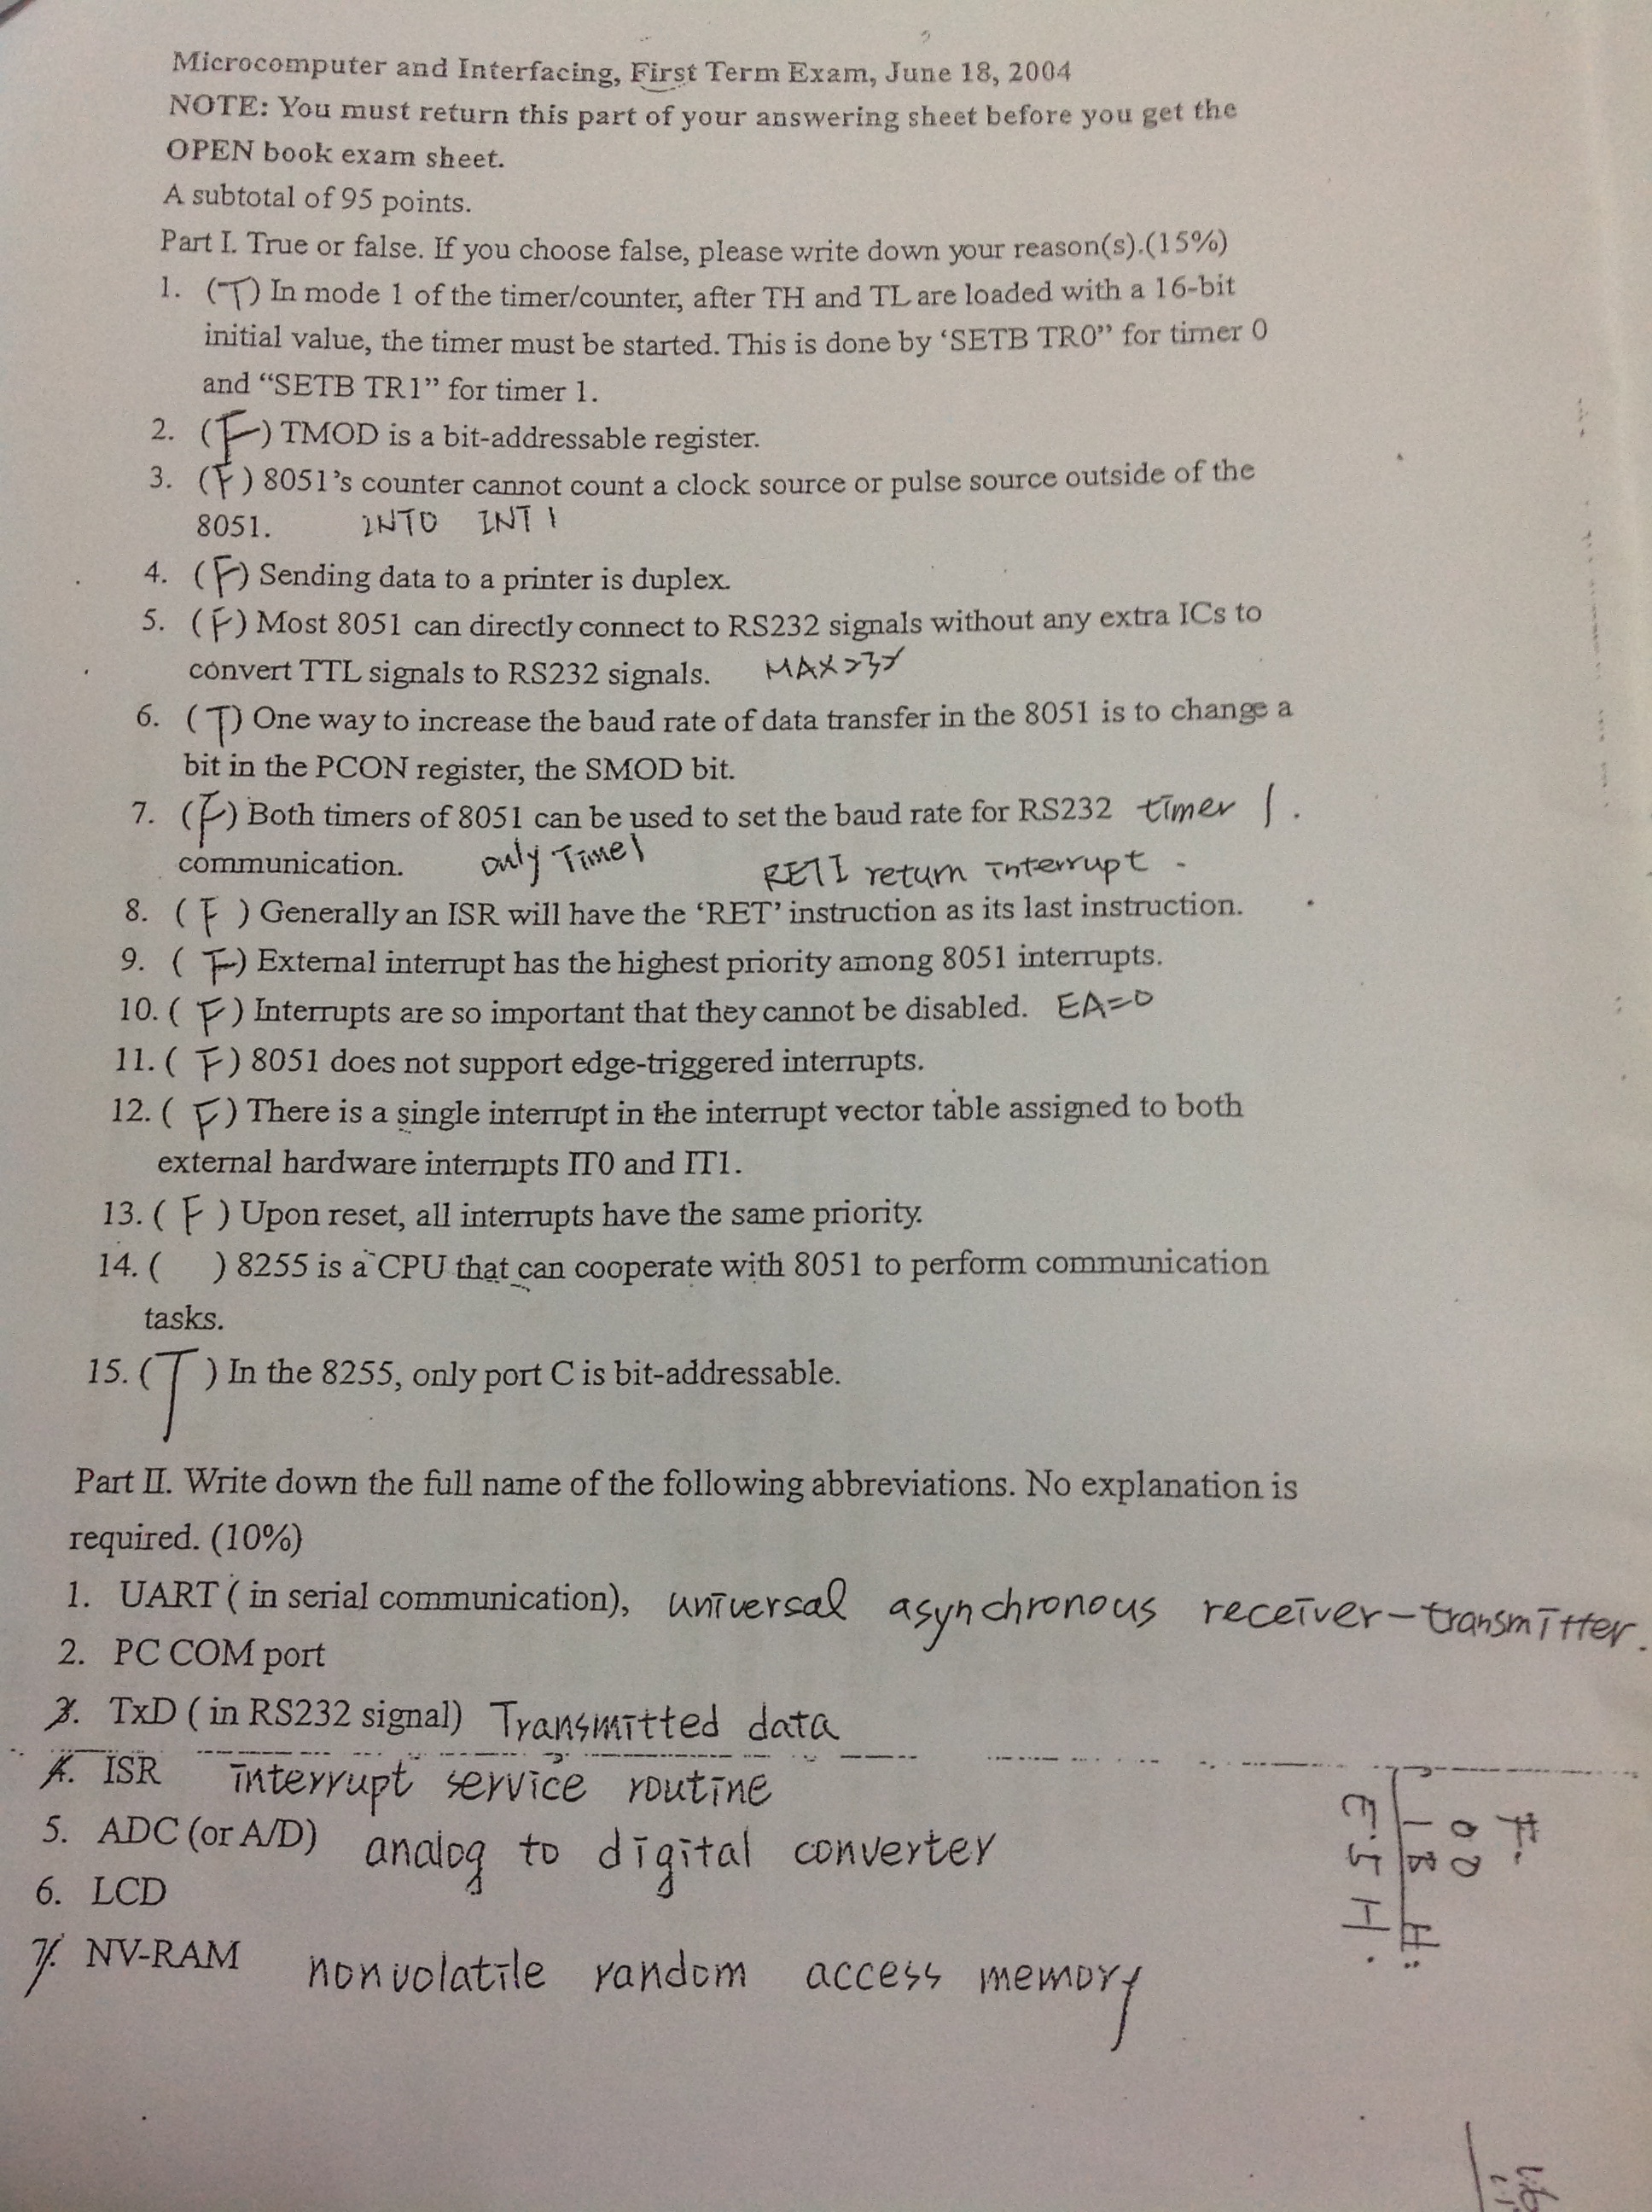 Microcomputer and Interfacing, First Term Exam, June 18, 2004
NOTE: You must return this part of your answering sheet before you get the
OPEN book exam sheet.
A subtotal of 95 points.
Part I. True or false. If you choose false, please write down your reason(s).(15%)
1. (T) In mode 1 of the timer/counter, after TH and TL are loaded with a 16-bit
initial value, the timer must be started. This is done by ‘SETB TR0” for timer 0
and “SETB TR1” for timer 1.
2. (F) TMOD is a bit-addressable register.
3. (F) 8051’s counter cannot count a clock source or pulse source outside of the
8051. INT0 INT1
4. (F) Sending data to a printer is duplex.
5. (F) Most 8051 can directly connect to RS232 signals without any extra ICs to
convert TTL signals to RS232 signals. MAX232
6. (T) One way to increase the baud rate of data transfer in the 8051 is to change a
bit in the PCON register, the SMOD bit.
7. (F) Both timers of 8051 can be used to set the baud rate for RS232 timer 1.
communication. only Time1 RETI return interrupt
8. (F) Generally an ISR will have the ‘RET’ instruction as its last instruction.
9. (F) External interrupt has the highest priority among 8051 interrupts.
10. (F) Interrupts are so important that they cannot be disabled. EA=0
11. (F) 8051 does not support edge-triggered interrupts.
12. (F) There is a single interrupt in the interrupt vector table assigned to both
external hardware interrupts IT0 and IT1.
13. (F) Upon reset, all interrupts have the same priority.
14. ( ) 8255 is a CPU that can cooperate with 8051 to perform communication
tasks.
15. (T) In the 8255, only port C is bit-addressable.
Part II. Write down the full name of the following abbreviations. No explanation is
required. (10%)
1. UART ( in serial communication), universal asynchronous receiver-transmitter.
2. PC COM port
3. TxD ( in RS232 signal) Transmitted data
4. ISR interrupt service routine
5. ADC (or A/D) analog to digital converter
6. LCD
7. NV-RAM nonvolatile random access memory